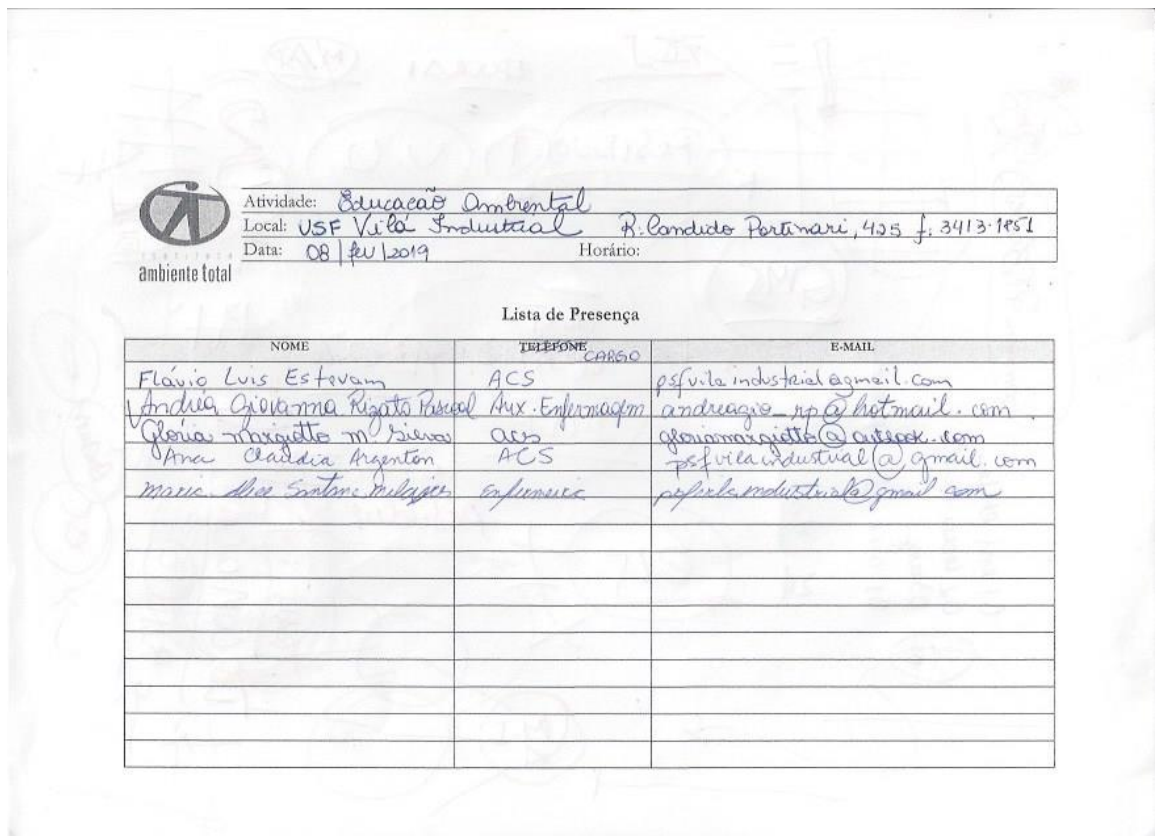 Atividade: Educacaão Ambiental
Local: USF Vila Industrial R. Candido Portinari, 425 f. 3413-1851
Data: 08/fev/2019 Horário:
ambiente total
Lista de Presença
NOME TELEFONE CARGO E-MAIL
Flávio Luis Estevam ACS psfvilaindustrial@gmail.com
Andréa Giovanna Rizato Pascoal Aux. Enfermagem andreagio_rp@hotmail.com
Glória Margiotto M Silva acs gloriamargiotto@outlook.com
Ana Claudia Argenton ACS psfvilaindustrial@gmail.com
Maria Santana Enfermeira psfvilaindustrial@gmail com